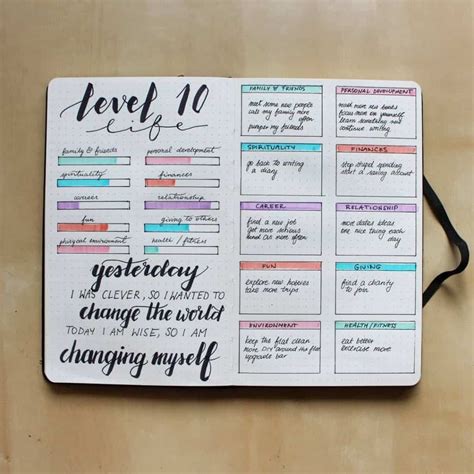 level 10
life
family & friends
personal development
spirituality
finances
career
relationship
fun
giving to others
physical environment
health / fitness
yesterday
I WAS CLEVER, SO I WANTED TO
change the world
TODAY I AM WISE, SO I AM
changing myself
FAMILY & FRIENDS
meet some new people
call my family more
often
pamper my friends
PERSONAL DEVELOPMENT
read more books
focus more on myself
learn something new
continue writing
SPIRITUALITY
go back to writing
a diary
FINANCES
stop stupid spending
start a saving
account
CAREER
find a new job
get more serious
send CAR more often
RELATIONSHIP
more dates ideas
one nice thing each
day
FUN
explore new hobbies
take more trips
GIVING
find a charity
to join
ENVIRONMENT
keep the flat clean
more DIY around the flat
upgrade bar
HEALTH/FITNESS
eat better
exercise more